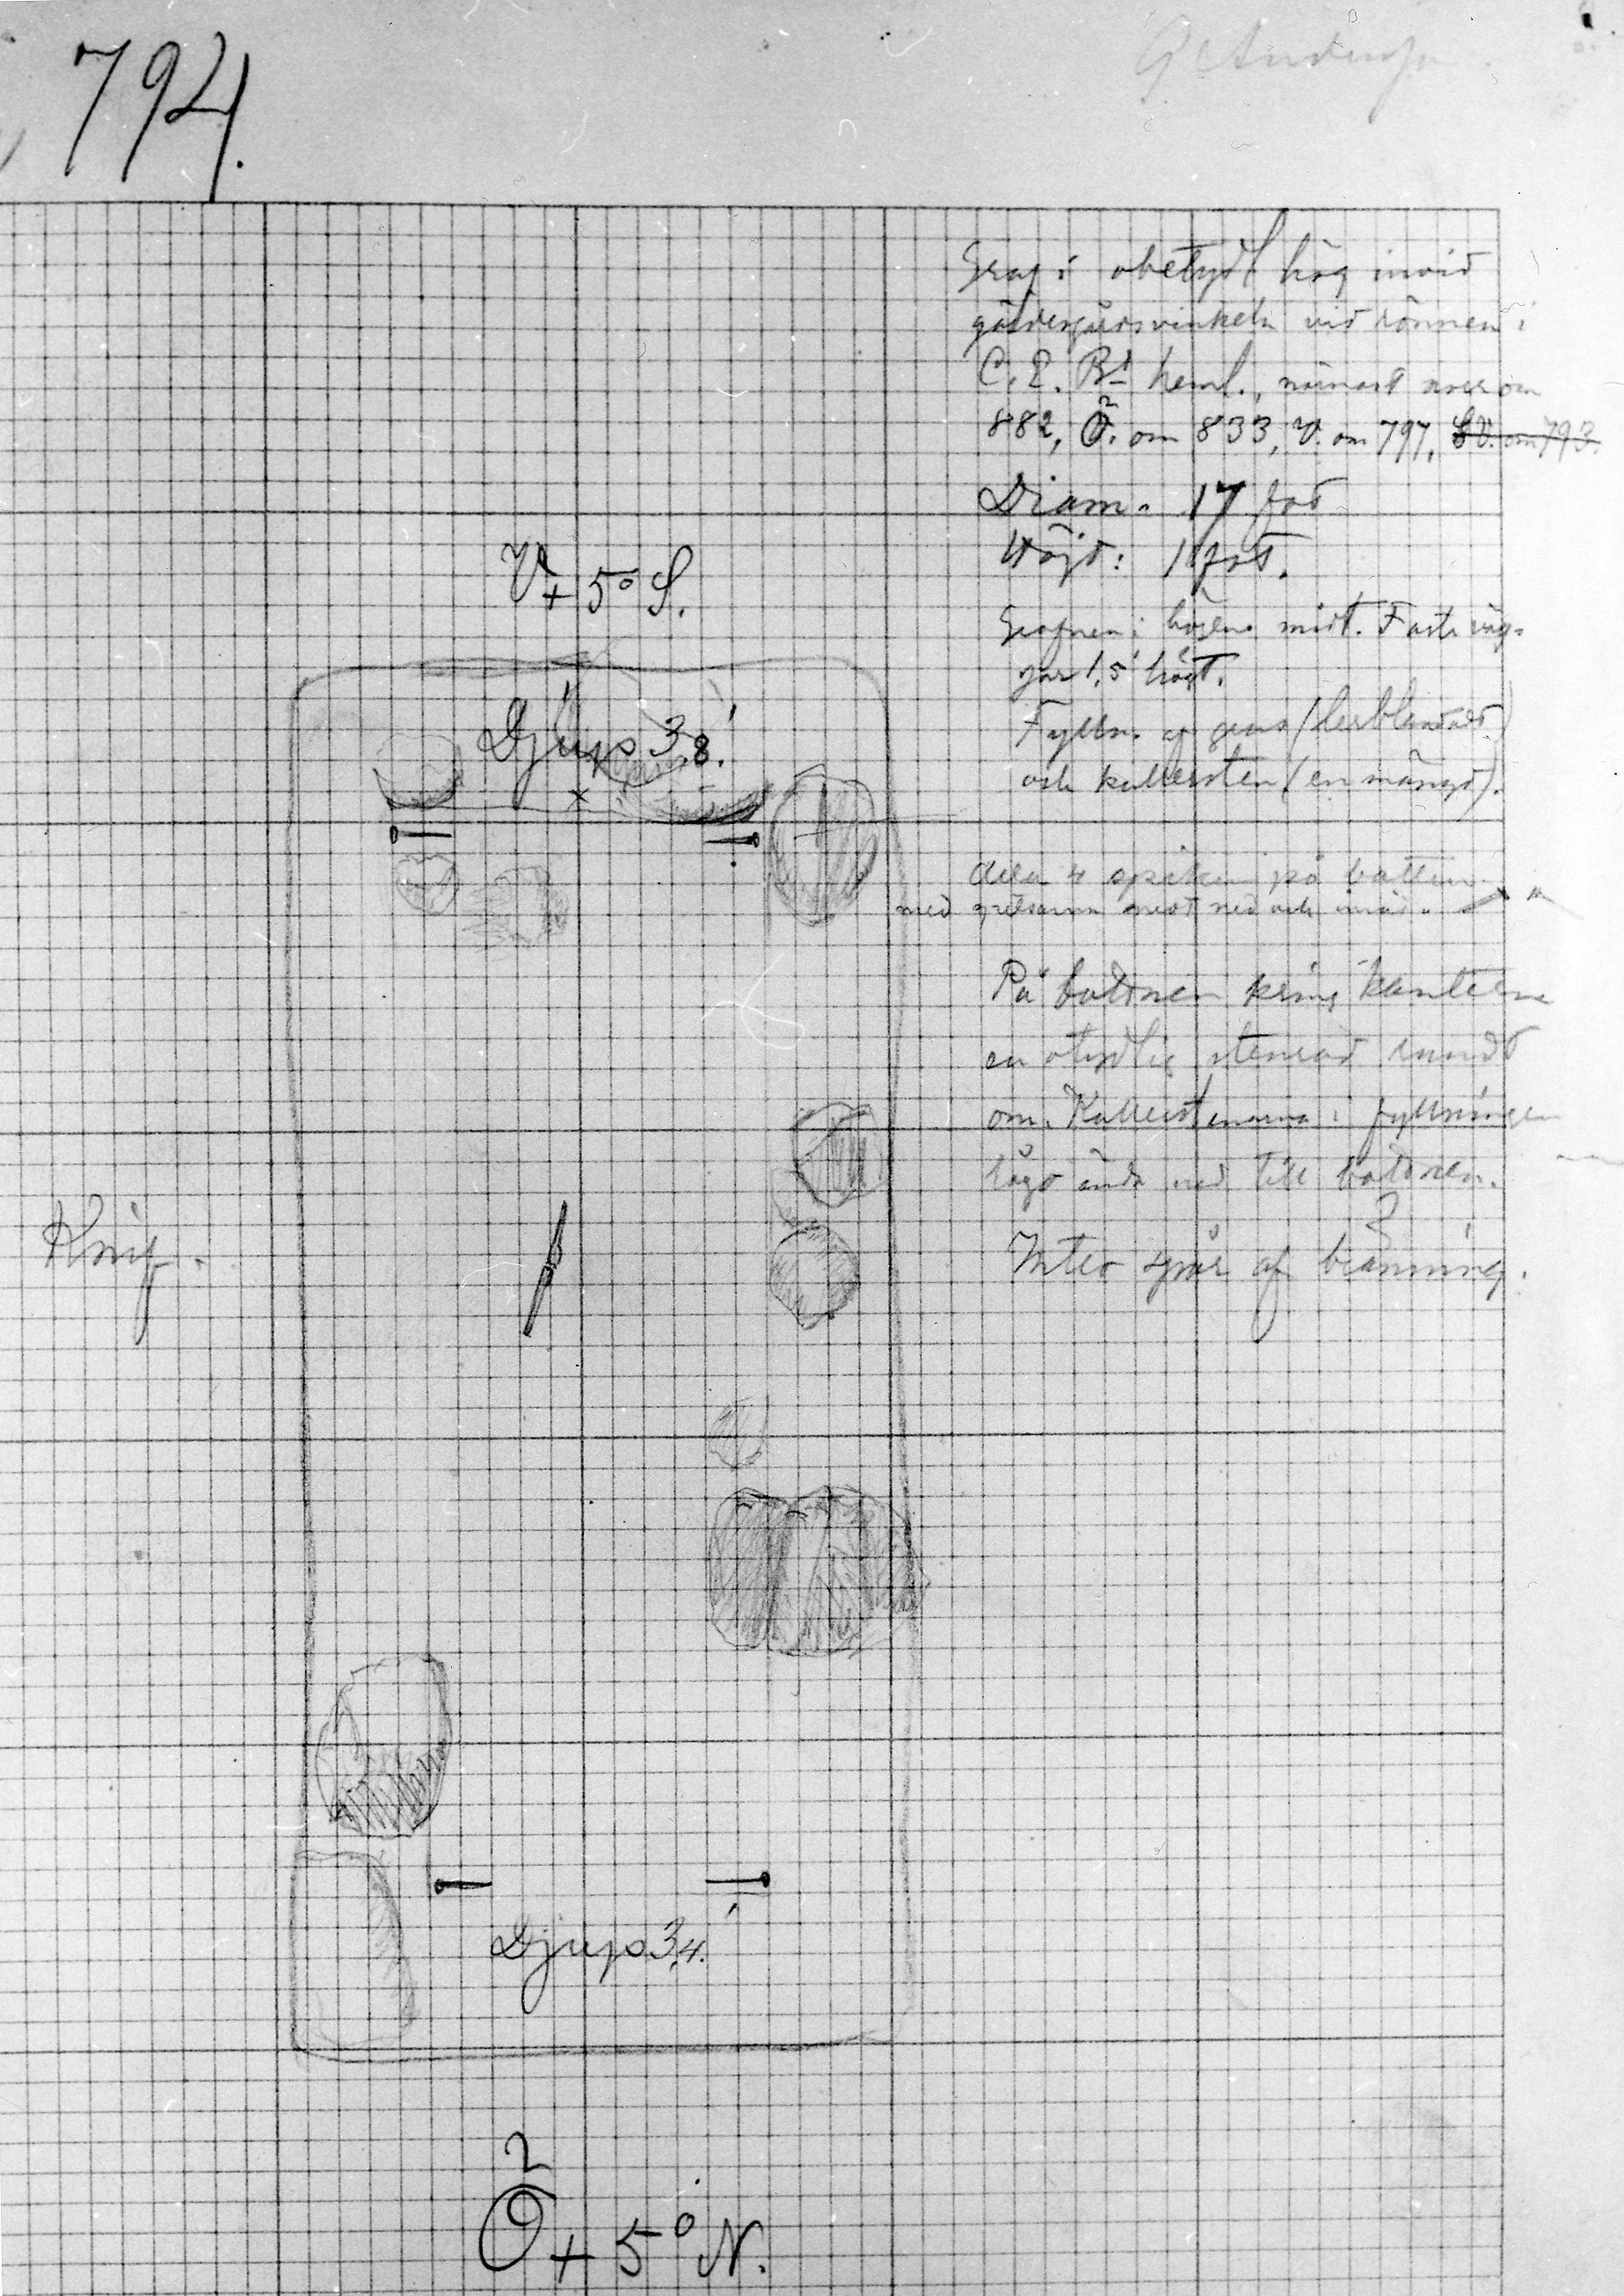 794.
Graf i obetydl hög invid
gärdesgårdsvinkeln vid rönnen i
C. E. Bs heml., närmast norr om
882, Ö. om 833, V. om 797, SV. om 793.
Diam. 17 fot
Höjd: 1 fot.
V + 5° S.
Grafven i högens midt. Fasta väg-
gar 1,5' högt.
Djup 3,8'.
Fylln. af grus (lerblandadt)
och kullersten (en mängd).
Alla 4 spikar på botten
med spetsarna ned och inåt.
På bottnen kring kanterna
en otydlig stenrad rundt
om. Kullerstenarna i fyllningen
lågo ända ned till bottnen.
Knif.
Intet spår af bränning.
Djup 3,4'.
Ö + 5° N.